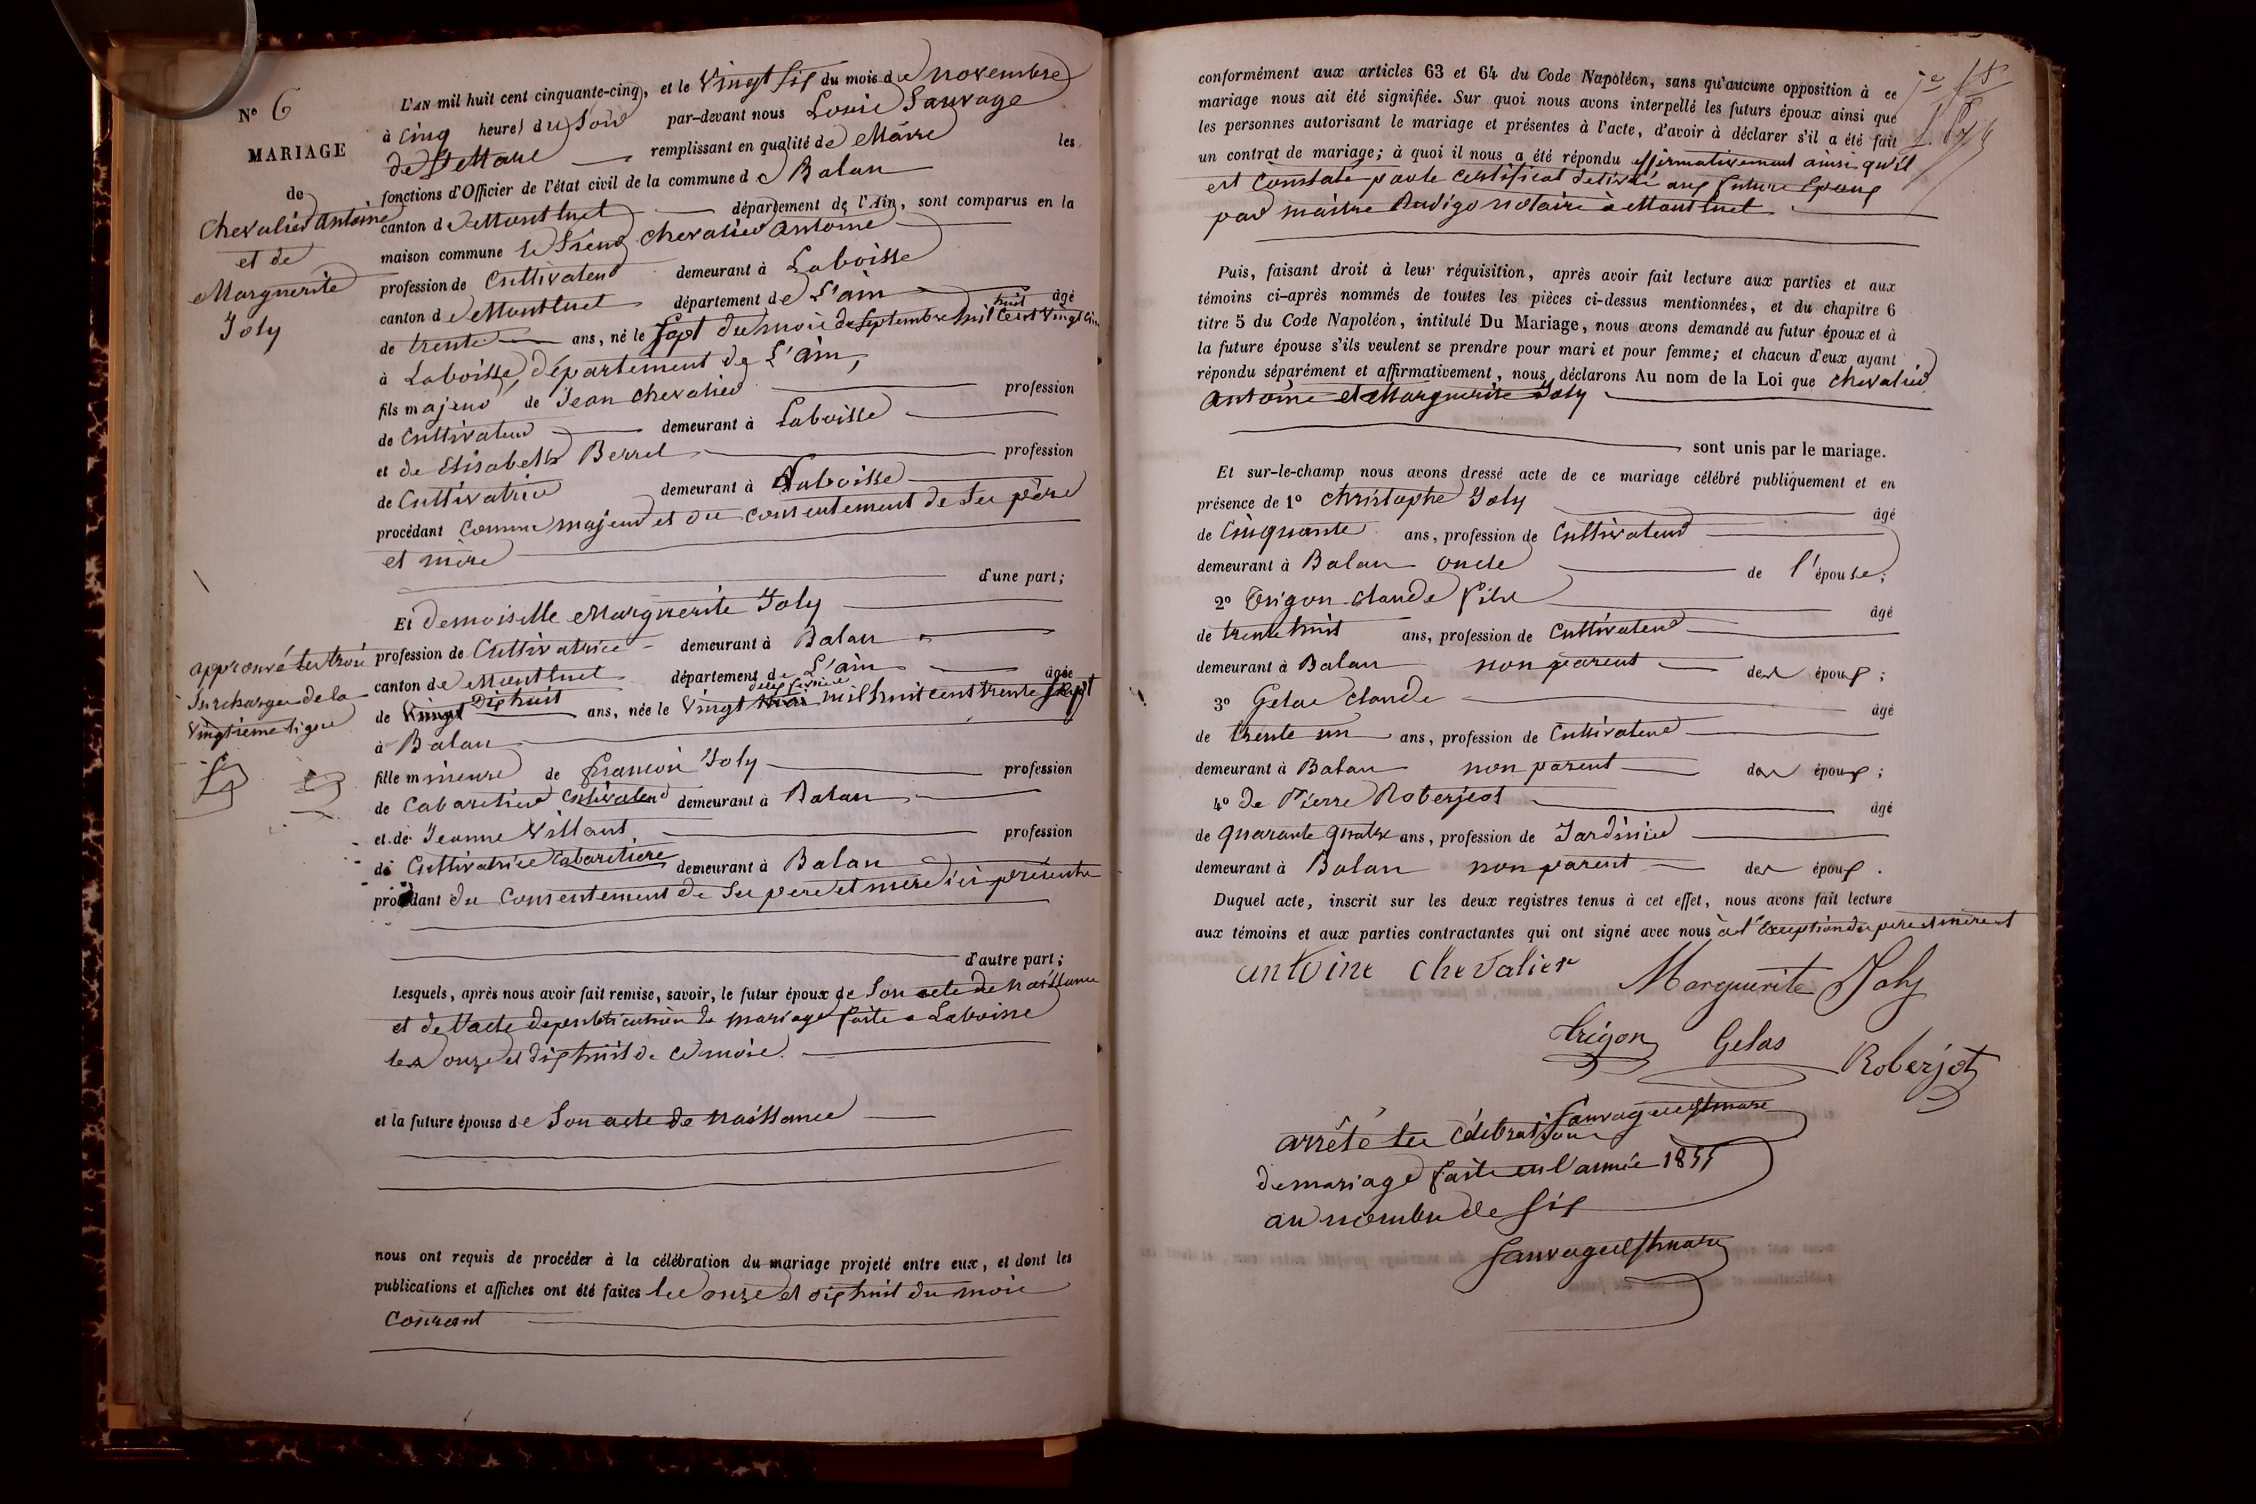 N° 6
MARIAGE
de
Chevalier Antoine
et de
Marguerite
Joly
L'AN mil huit cent cinquante-cinq, et le Vingt six du mois de novembre
à Cinq heures du Soir par-devant nous Louis Sauvage
de St Mare remplissant en qualité de Maire les
fonctions d'Officier de l'état civil de la commune de Balan
canton de Montluel département de l'Ain, sont comparus en la
maison commune le Sieur Chevalier Antoine
profession de Cultivateur demeurant à Laboisse
canton de Montluel département de L'ain âgé
de trente ans, né le Sept du mois de Septembre mil huit Cent Vingt
à Laboisse, département de L'ain,
fils majeur de Jean Chevalier profession
de Cultivateur demeurant à Laboisse
et de Elisabeth Berret profession
de Cultivatrice demeurant à Laboisse
procédant Comme majeur et du consentement de Ses père
et mère
d'une part;
Et Demoiselle Marguerite Joly
profession de Cultivatrice demeurant à Balan
canton de Montluel département de L'ain âgée
de Dixhuit ans, née le Vingt mil huit cent trente Sept
à Balan
fille mineure de françois Joly profession
de Cabaretier Cultivateur demeurant à Balan
et de Jeanne Villant profession
de Cultivatrice Cabaretière demeurant à Balan
procédant du Consentement de Ses pere et mere ici présents
d'autre part;
approuvé les trois
Surcharges de la
Vingtième ligne
Lesquels, après nous avoir fait remise, savoir, le futur époux de Son acte de naissance
et de l'acte de publication de mariage faite a Laboisse
les onze et dixhuit de ce mois.
et la future épouse de Son acte de naissance
nous ont requis de procéder à la célébration du mariage projeté entre eux, et dont les
publications et affiches ont été faites les onze et dixhuit du mois
Courant
conformément aux articles 63 et 64 du Code Napoléon, sans qu'aucune opposition à ce
mariage nous ait été signifiée. Sur quoi nous avons interpellé les futurs époux ainsi que
les personnes autorisant le mariage et présentes à l'acte, d'avoir à déclarer s'il a été fait
un contrat de mariage; à quoi il nous a été répondu affirmativement ainsi qu'il
est Constaté par le Certificat délivré aux futurs Epoux
par maître Rudigo notaire à Montluel
Puis, faisant droit à leur réquisition, après avoir fait lecture aux parties et aux
témoins ci-après nommés de toutes les pièces ci-dessus mentionnées, et du chapitre 6
titre 5 du Code Napoléon, intitulé Du Mariage, nous avons demandé au futur époux et à
la future épouse s'ils veulent se prendre pour mari et pour femme; et chacun d'eux ayant
répondu séparément et affirmativement, nous déclarons Au nom de la Loi que Chevalier
Antoine et Marguerite Joly
sont unis par le mariage.
Et sur-le-champ nous avons dressé acte de ce mariage célébré publiquement et en
présence de 1° Christophe Joly âgé
de Cinquante ans, profession de Cultivateur
demeurant à Balan oncle de l'épouse;
2° Trigon Claude âgé
de trente huit ans, profession de Cultivateur
demeurant à Balan non parent des époux;
3° Gelas Claude âgé
de trente un ans, profession de Cultivateur
demeurant à Balan non parent des époux;
4° de Pierre Roberjeot âgé
de quarante quatre ans, profession de Jardinier
demeurant à Balan non parent des époux.
Duquel acte, inscrit sur les deux registres tenus à cet effet, nous avons fait lecture
aux témoins et aux parties contractantes qui ont signé avec nous à l'exception des père et mère
antoine chevalier Marguerite Joly
trigon Gelas Roberjot
Sauvage de St mare
arrêté les célébrations
de mariage faite en l'année 1855
au nombre de Six
Sauvage de St mare